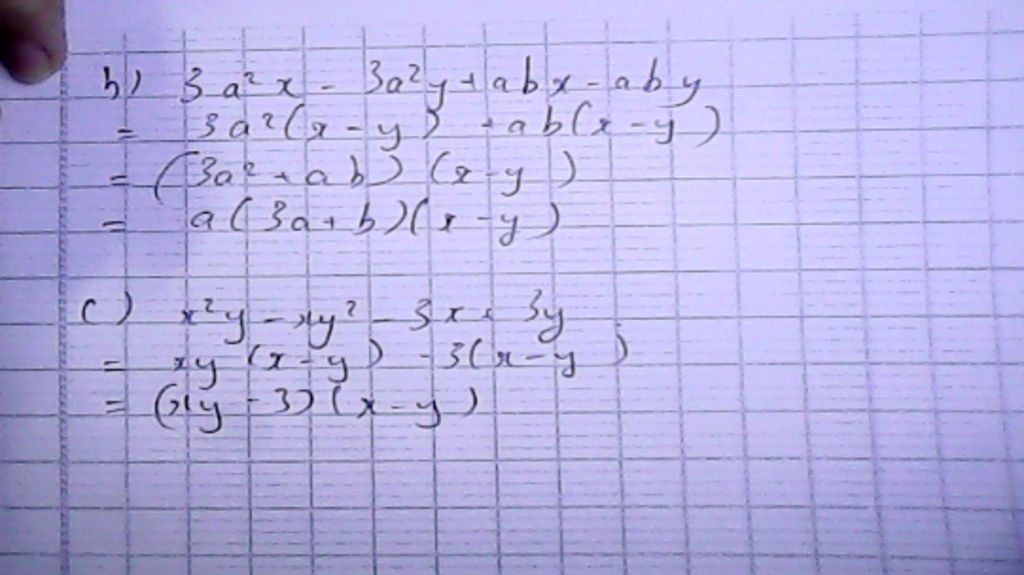 b) 3a²x - 3a²y + abx - aby
= 3a²(x - y) + ab(x - y)
= (3a² + ab) (x - y)
= a(3a + b)(x - y)
c) x²y - xy² - 3x + 3y
= xy (x - y) - 3(x - y)
= (xy - 3)(x - y)